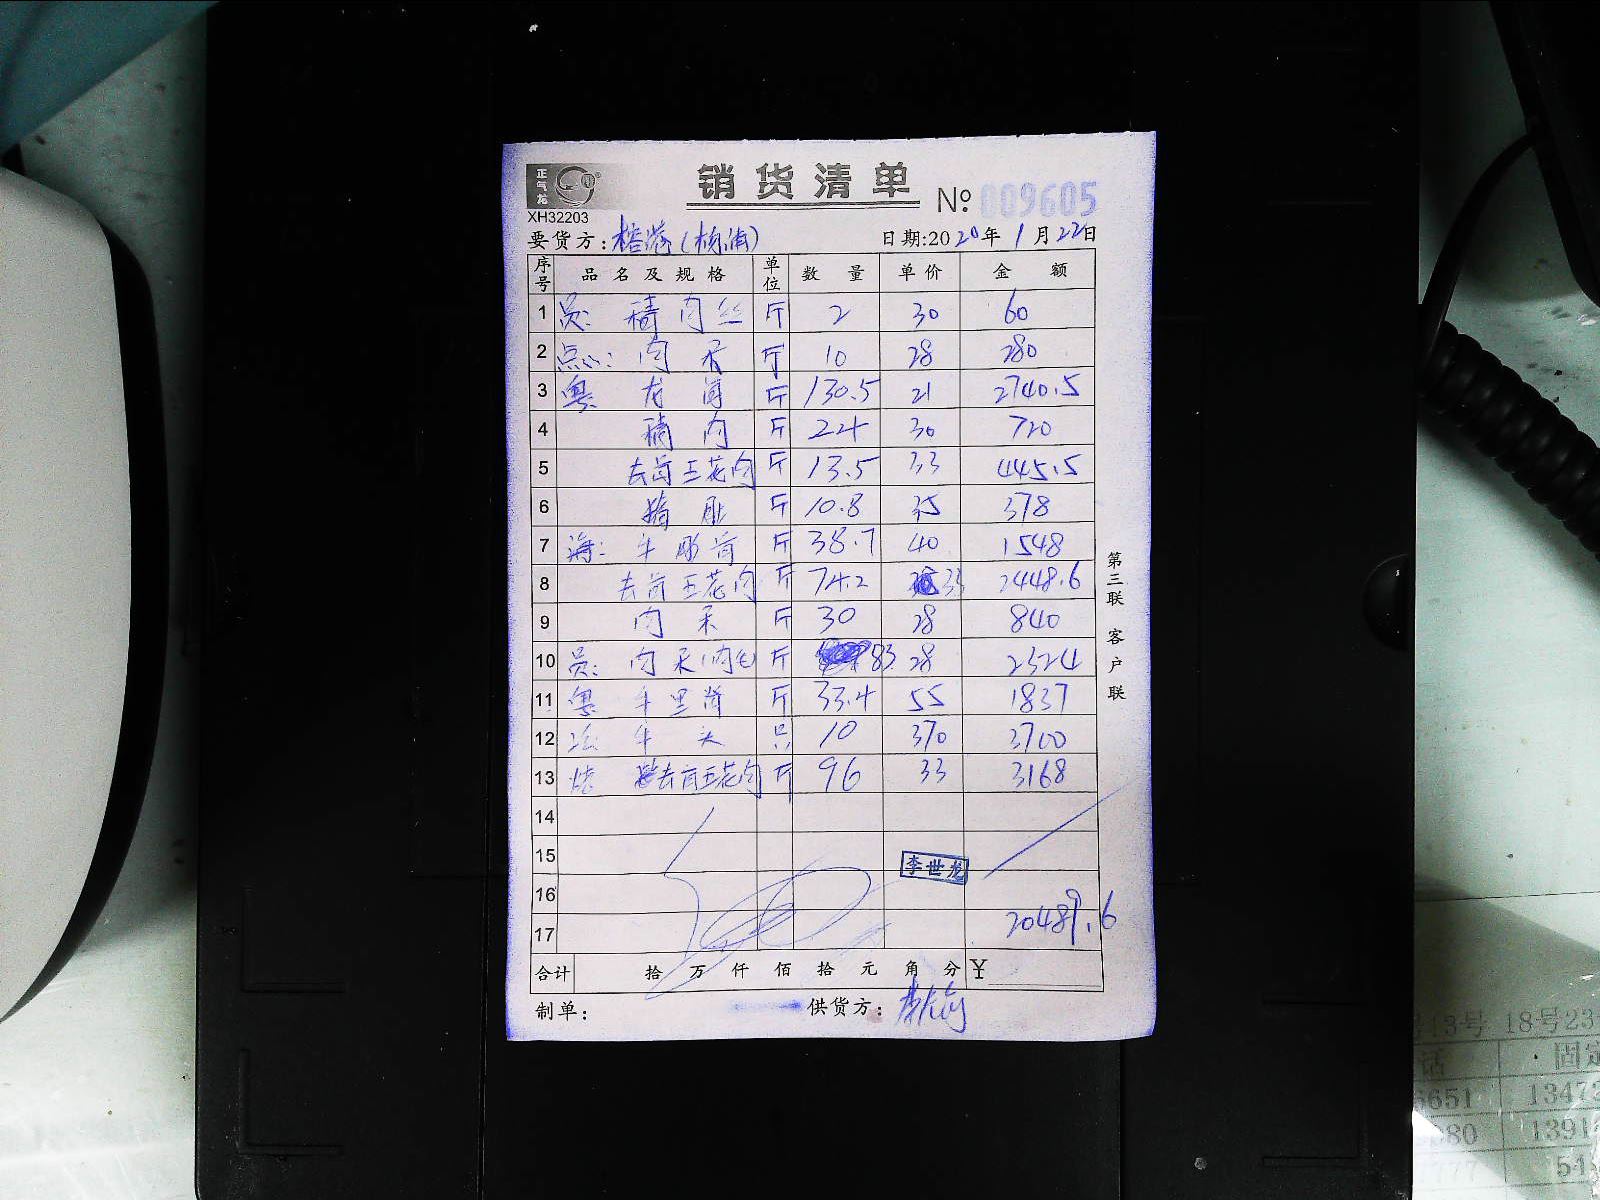 正气龙
销货清单
№ 009605
XH32203
要货方:
日期:2020年1月22日
序号 品名及规格 单位 数量 单价 金额
1 员: 精肉丝 斤 2 30 60
2 点心: 肉 斤 10 28 280
3 粤 斤 130.5 21 2740.5
4 精肉 斤 24 30 720
5 五花肉 斤 13.5 33 445.5
6 斤 10.8 35 378
7 海: 牛 斤 38.7 40 1548
8 五花肉 斤 74.2 33 2448.6
9 肉 斤 30 28 840
10 员: 肉 斤 83 28 2324
11 粤 牛里 斤 33.4 55 1837
12 牛头 只 10 370 3700
13 烧 五花肉 斤 96 33 3168
14
15 李世龙
16
17 20489.6
合计 拾 万 仟 佰 拾 元 角 分 ¥
制单: 供货方:
第三联 客户联
13号 18号23
话 固定
6651 1347
080 1391
777 54